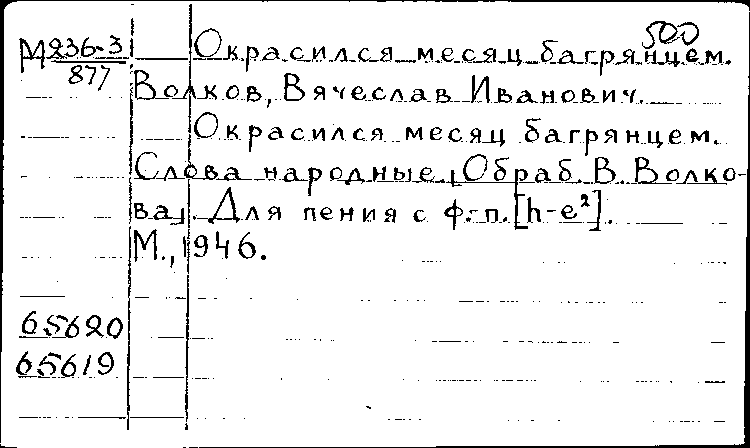 500
М236-3 Окрасился месяц багрянцем.
877 Волков, Вячеслав Иванович.
Окрасился месяц багрянцем.
Слова народные. [Обраб. В. Волко-
ва]. Для пения с ф.-п. [h-e²].
М., 1946.
65620
65619